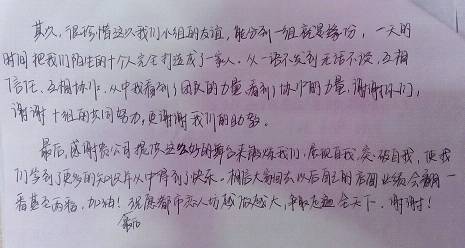 其次，很珍惜这次我们小组的友谊，能分到一组就是缘份，一天的
时间把我们陌生的十个人完全打造成了一家人。从一语不发到无话不谈，互相
信任，互相协作。从中我看到了团队的力量，看到了协作的力量，谢谢你们，
谢谢十组的共同努力，更谢谢我们的助教。
最后，感谢公司提供这么好的舞台来激练我们，展现自我，突破自我，使我
们学到了更多的知识并从中得到了快乐。相信大家回去以后自己的店面业绩会翻一
番甚至两番，加油！祝愿都市恋人伤越做越大，争取走遍全天下，谢谢！
最后